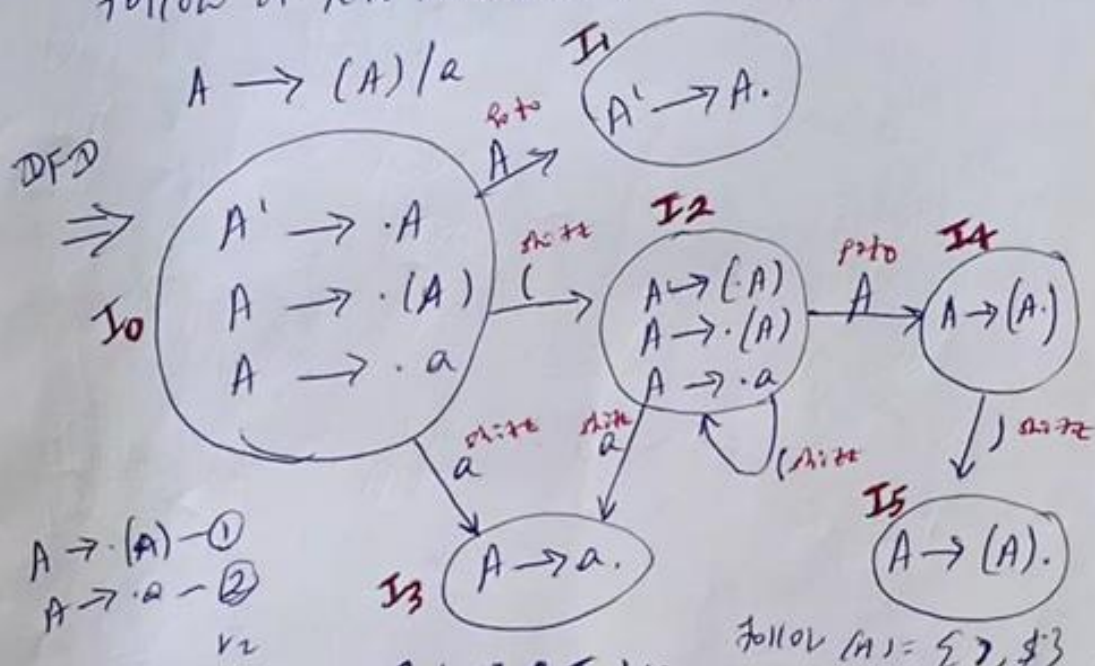 Follow
A → (A) / a
DFD
⇒
I0
A' → .A
A → .(A)
A → .a
goto
A
I1
A' → A.
shift
(
I2
A → (.A)
A → .(A)
A → .a
goto
A
I4
A → (A.)
shift
a
shift
a
( shift
) shift
I3
A → a.
I5
A → (A).
A → .(A) - ①
A → .a - ②
r2
Follow (A) = { ), $ }